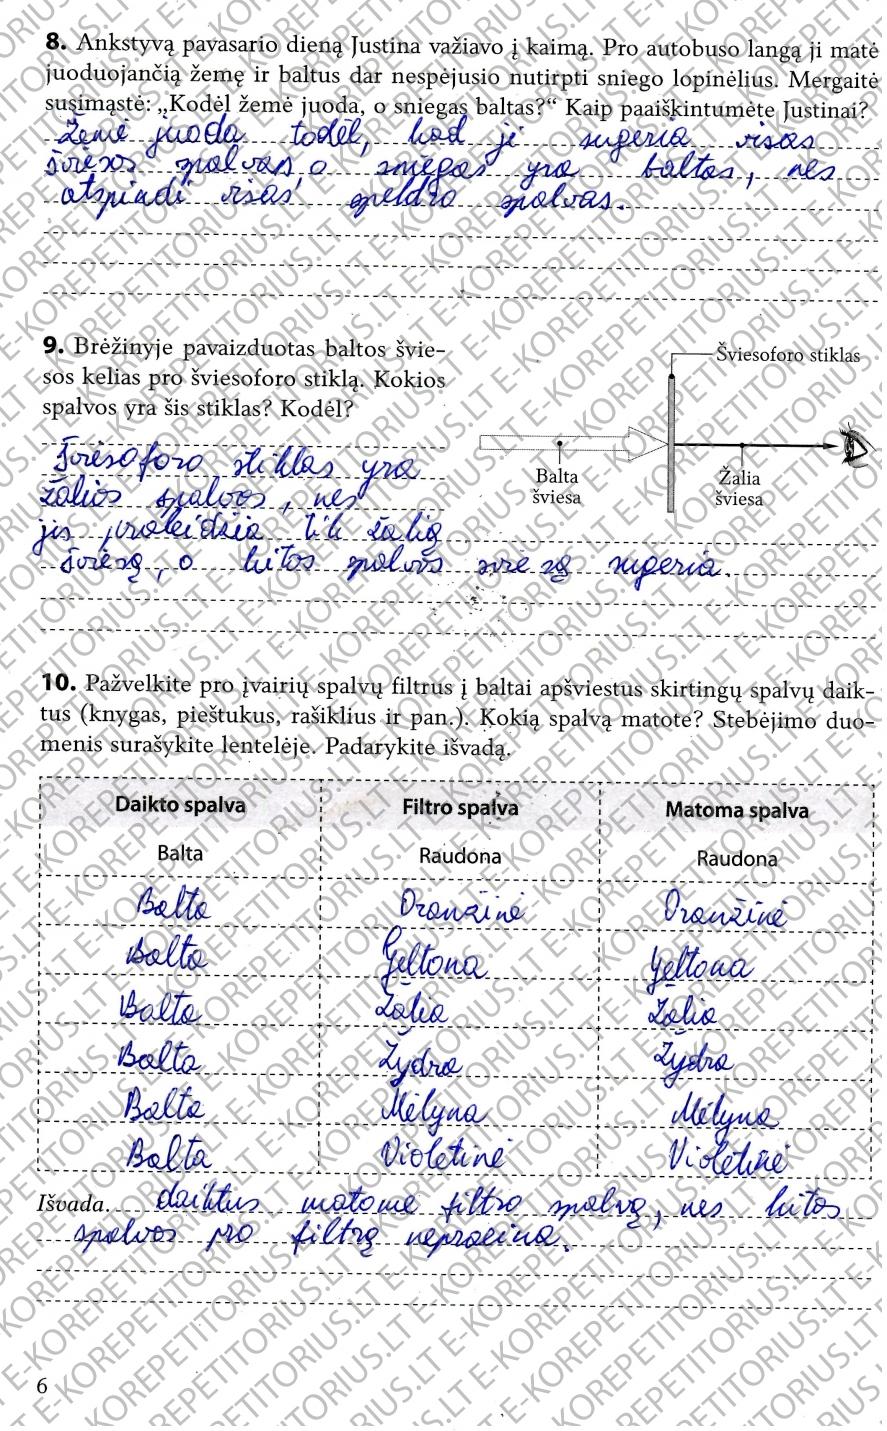 8. Ankstyvą pavasario dieną Justina važiavo į kaimą. Pro autobuso langą ji matė
juoduojančią žemę ir baltus dar nespėjusio nutirpti sniego lopinėlius. Mergaitė
susimąstė: „Kodėl žemė juoda, o sniegas baltas?“ Kaip paaiškintumėte Justinai?
Žemė juoda todėl, kad ji sugeria visas
šviesos spalvas, o sniegas yra baltas, nes
atspindi visas spektro spalvas.
9. Brėžinyje pavaizduotas baltos švie-
sos kelias pro šviesoforo stiklą. Kokios
spalvos yra šis stiklas? Kodėl?
Šviesoforo stiklas
Balta
šviesa
Žalia
šviesa
Šviesoforo stiklas yra
žalios spalvos, nes
jis praleidžia tik žalią
šviesą, o kitos spalvos šviesą sugeria.
10. Pažvelkite pro įvairių spalvų filtrus į baltai apšviestus skirtingų spalvų daik-
tus (knygas, pieštukus, rašiklius ir pan.). Kokią spalvą matote? Stebėjimo duo-
menis surašykite lentelėje. Padarykite išvadą.
Daikto spalva Filtro spalva Matoma spalva
Balta Raudona Raudona
Balta Oranžinė Oranžinė
Balta Geltona Geltona
Balta Žalia Žalia
Balta Žydra Žydra
Balta Mėlyna Mėlyna
Balta Violetinė Violetinė
Išvada. daiktus matome filtro spalvą, nes kitos
spalvos pro filtrą nepraeina.
6
E-KOREPETITORIUS.LT